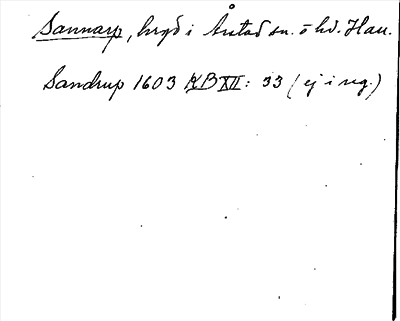 Sannarp, hrgd i Årstad sn. o hd. Hall.
Sandrup 1603 KB XII: 33 (ej i reg.)